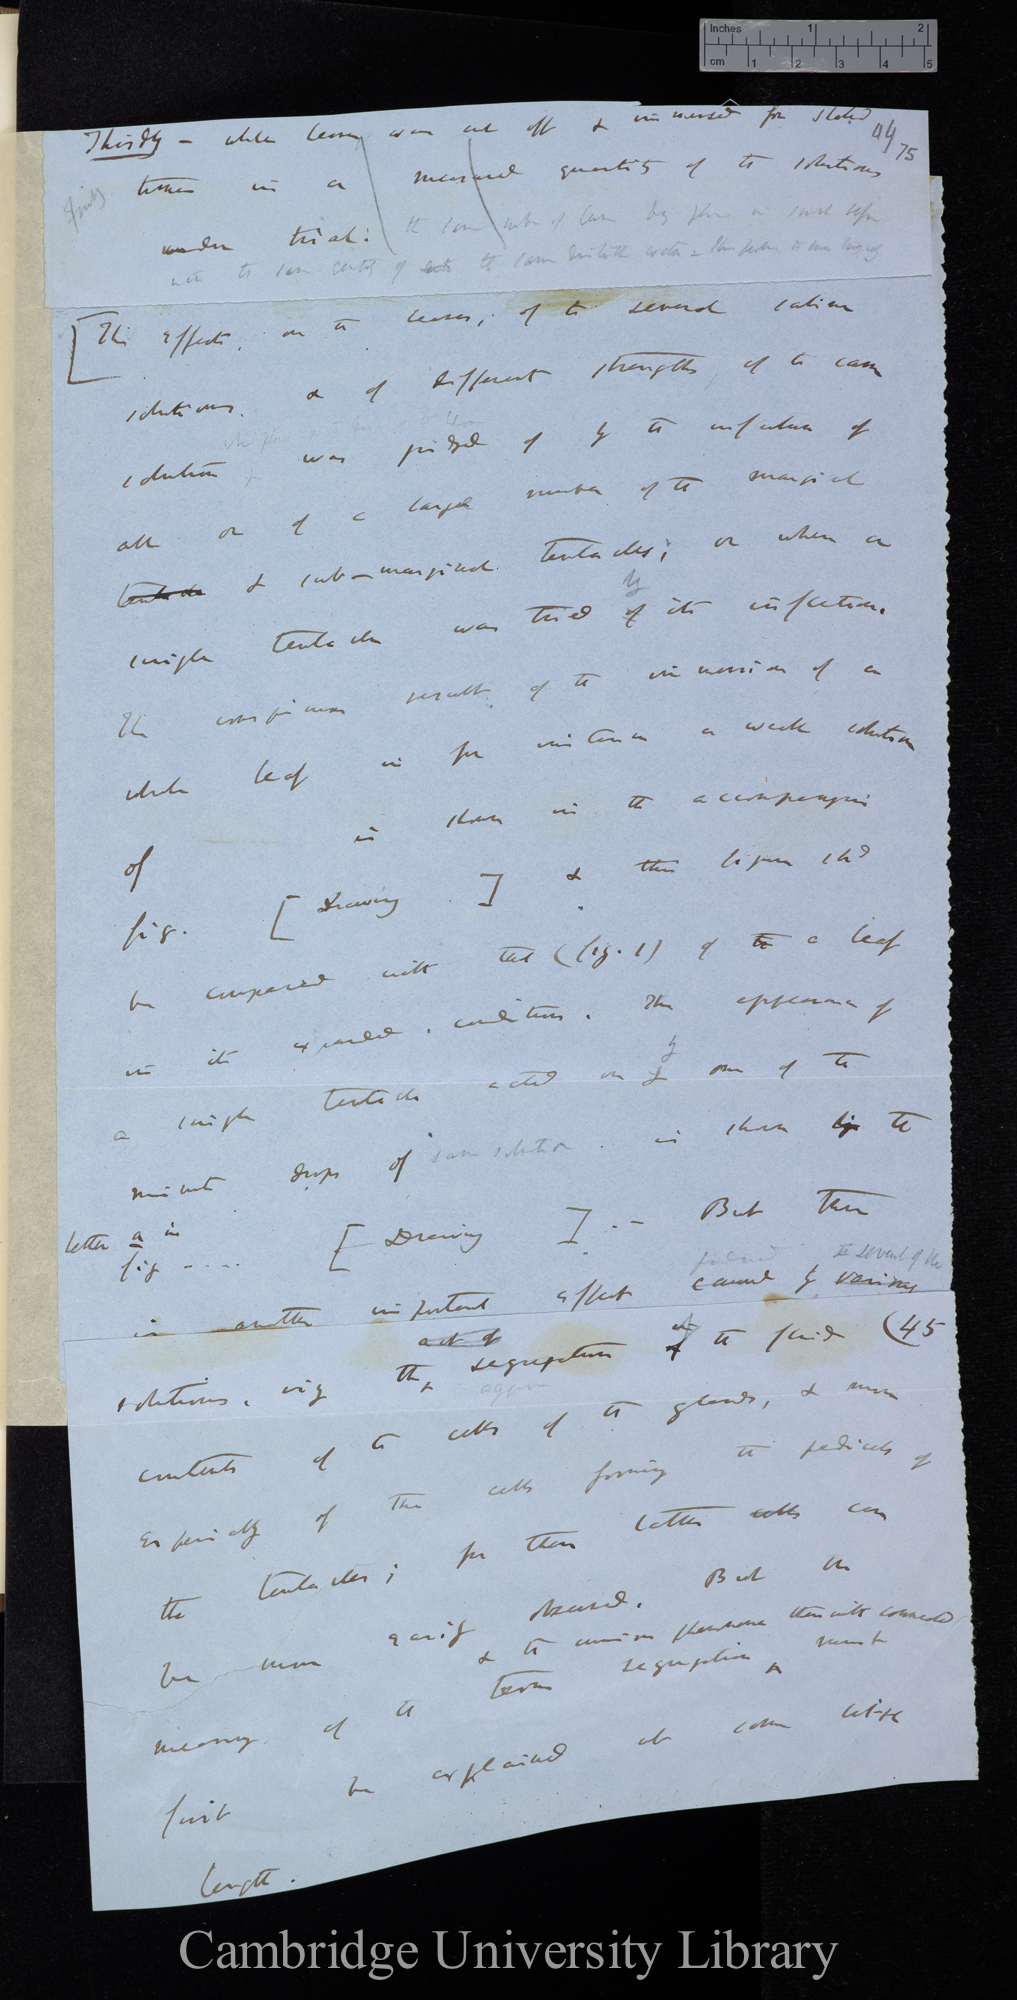 Inches 1 2
cm 1 2 3 4 5
44
75
Thirdly – whole leaves were cut off & immersed for stated
times in a measured quantity of the solutions
under trial:
the same number of leaves being placed in
not the same
[The effects, on the leaves, of the several saline
solutions. & of different strengths of the same
solution was judged of by the inflection of
all or of a large number of the marginal
tentacles & sub-marginal tentacles; or when a
by
single tentacle was tried of its inflection.
The conspicuous result of the immersion of a
whole leaf in for instance a weak solution
of is shown in the accompanying
fig. [Drawing] & this figure shd
be compared with that (fig. 1) of the a leaf
in its expanded condition. The appearance of
by
a single tentacle acted on by one of the
minute drops of same solution is shown by the
letter a in
fig .... [Drawing] .– But there
the several of the
is another important effect caused by various
(45
act of
solutions, viz the segregation of the fluid
contents of the cells of the glands, & more
especially of the cells forming the pedicels of
the tentacles; for these latter cells can
be more easily observed. But the
& the curious phenomena therewith connected
meaning of the term segregation must
first be explained at some little
length.
Cambridge University Library